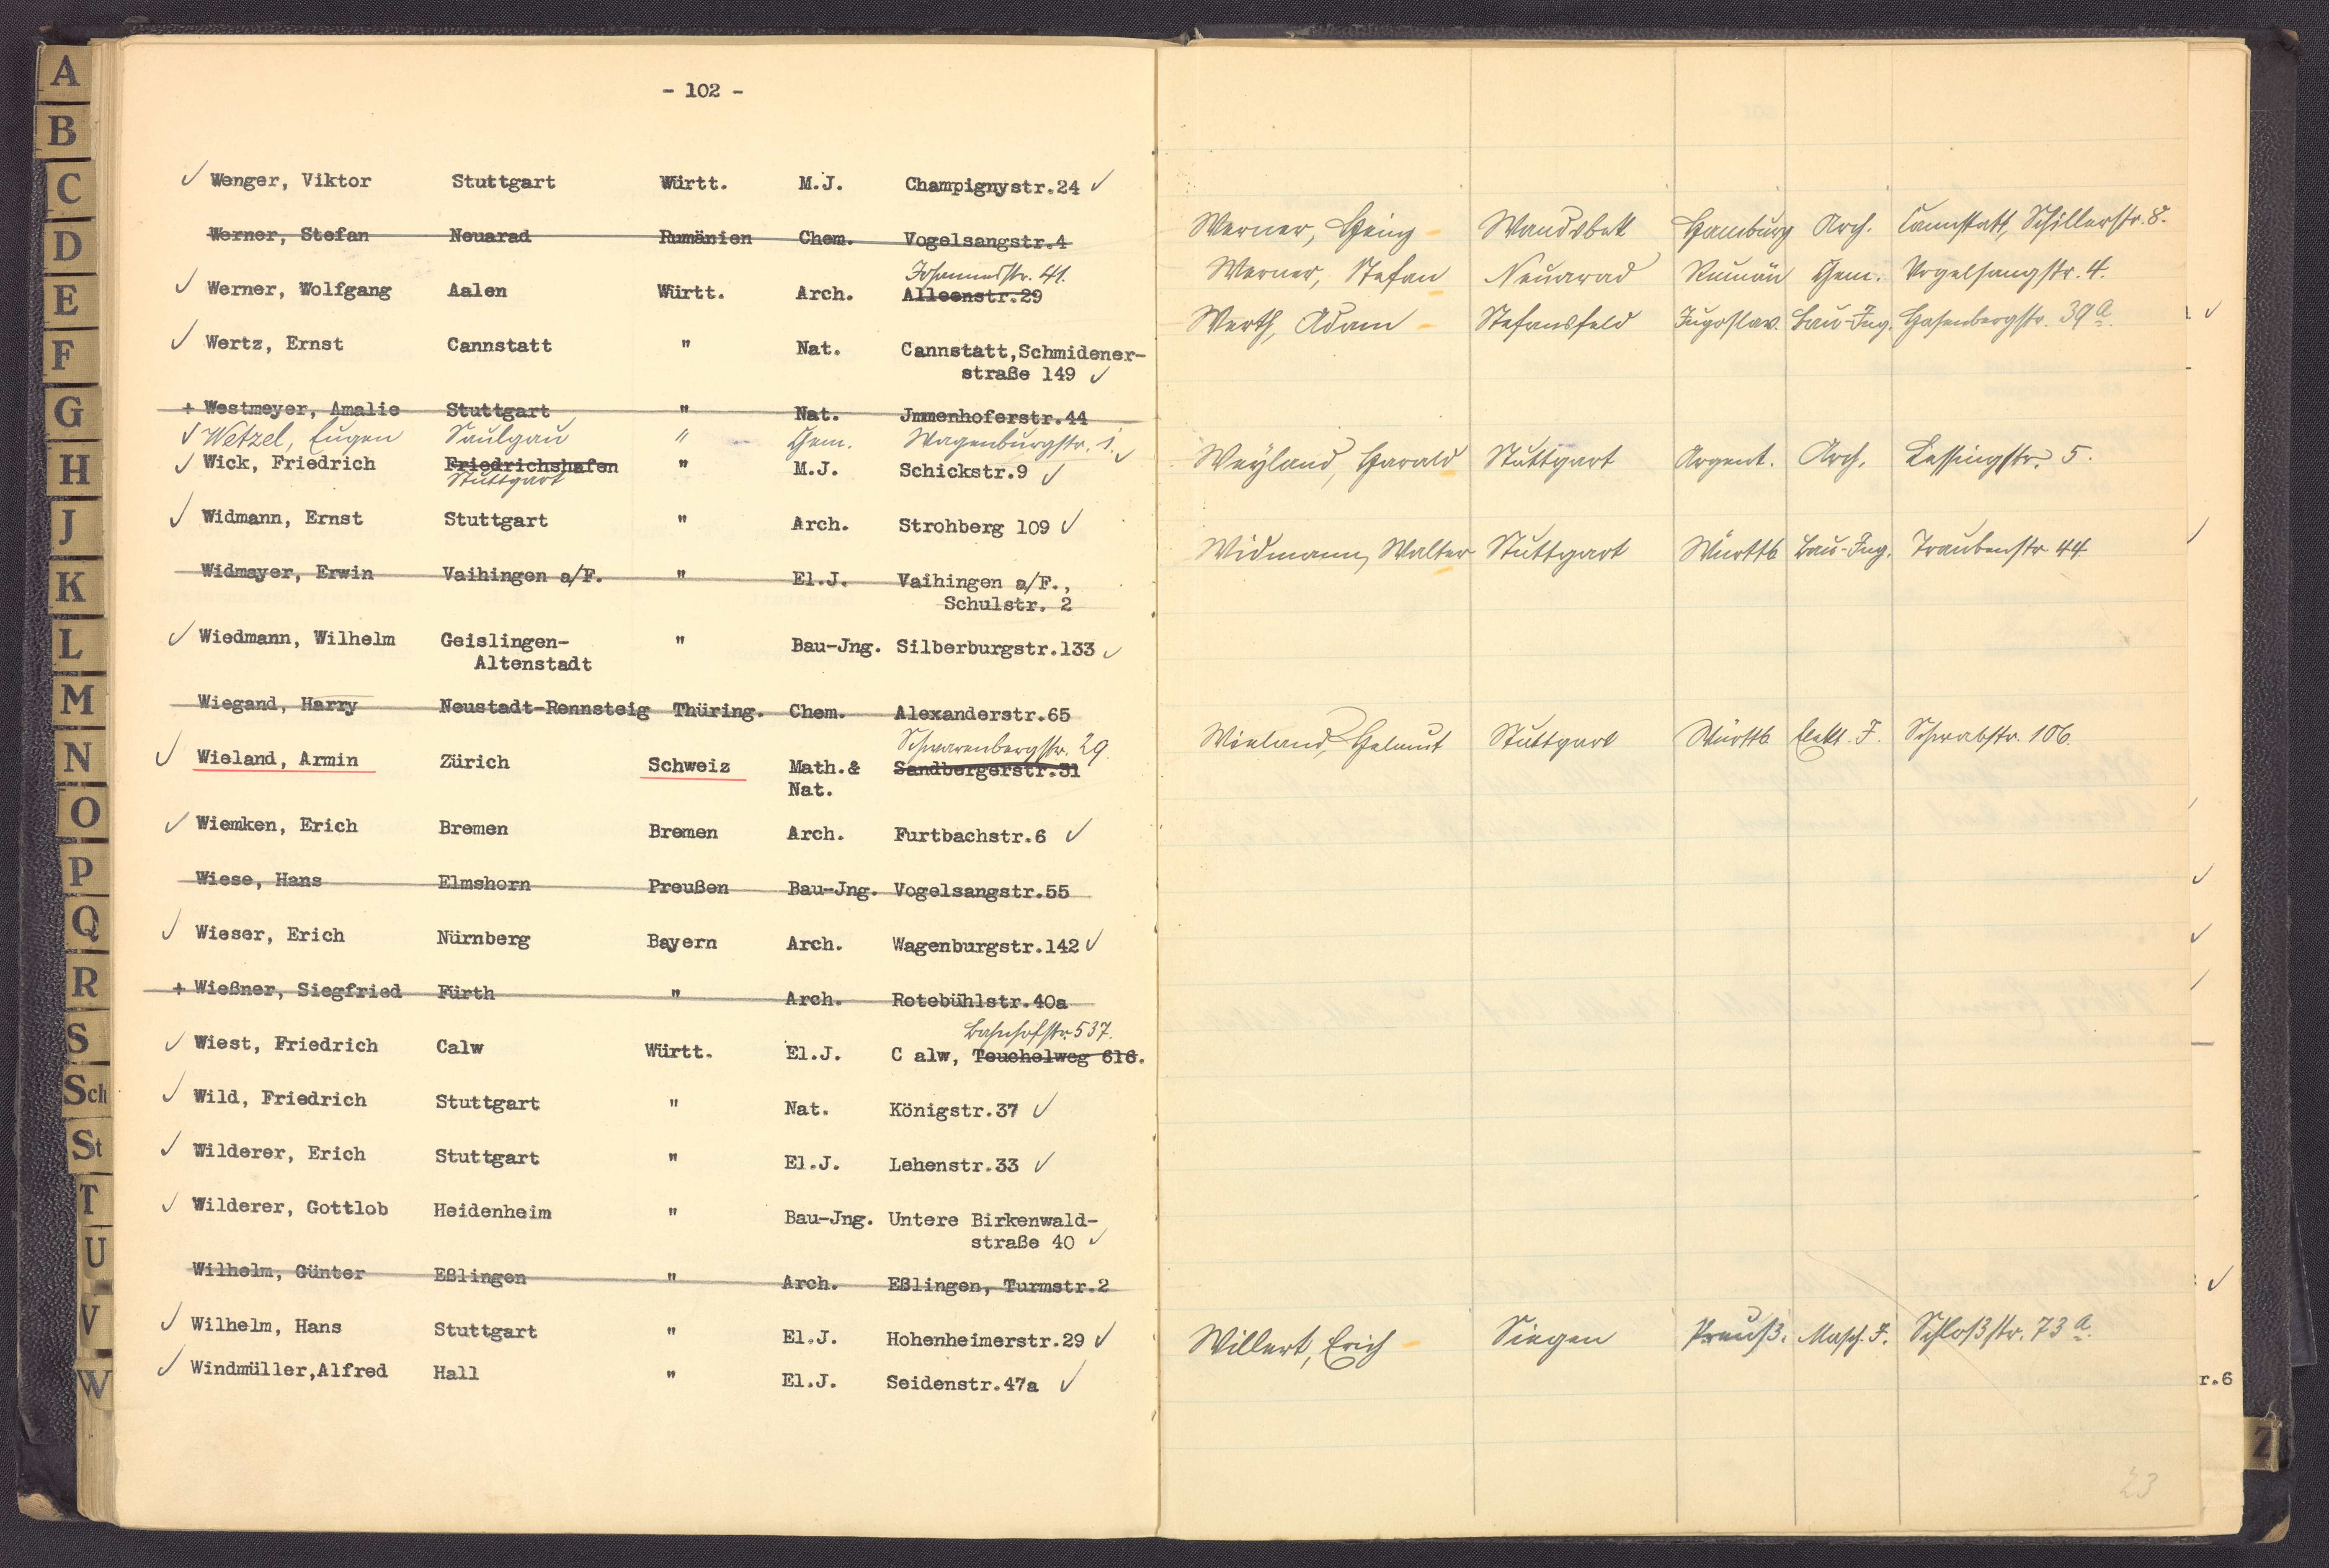 - 102 -
✓ Wenger, Viktor Stuttgart Württ. M.J. Champignystr.24 ✓
Werner, Stefan Neuarad Rumänien Chem. Vogelsangstr.4
Johannesstr. 41.
✓ Werner, Wolfgang Aalen Württ. Arch. Alleenstr.29
✓ Wertz, Ernst Cannstatt " Nat. Cannstatt,Schmidener-
straße 149 ✓
+ Westmeyer, Amalie Stuttgart " Nat. Jmmenhoferstr.44
✓ Wetzel, Eugen Saulgau " Chem. Wagenburgstr. 1. ✓
✓ Wick, Friedrich Friedrichshafen " M.J. Schickstr.9 ✓
Stuttgart
✓ Widmann, Ernst Stuttgart " Arch. Strohberg 109 ✓
Widmayer, Erwin Vaihingen a/F. " El.J. Vaihingen a/F.,
Schulstr. 2
✓ Wiedmann, Wilhelm Geislingen- " Bau-Jng. Silberburgstr.133 ✓
Altenstadt
Wiegand, Harry Neustadt-Rennsteig Thüring. Chem. Alexanderstr.65
29.
✓ Wieland, Armin Zürich Schweiz Math.& Sandbergerstr.31
Nat.
✓ Wiemken, Erich Bremen Bremen Arch. Furtbachstr.6 ✓
Wiese, Hans Elmshorn Preußen Bau-Jng. Vogelsangstr.55
✓ Wieser, Erich Nürnberg Bayern Arch. Wagenburgstr.142 ✓
+ Wießner, Siegfried Fürth " Arch. Rotebühlstr.40a
Bahnhofstr. 537.
✓ Wiest, Friedrich Calw Württ. El.J. C alw, Teuchelweg 616.
✓ Wild, Friedrich Stuttgart " Nat. Königstr.37 ✓
✓ Wilderer, Erich Stuttgart " El.J. Lehenstr.33 ✓
✓ Wilderer, Gottlob Heidenheim " Bau-Jng. Untere Birkenwald-
straße 40 ✓
Wilhelm, Günter Eßlingen " Arch. Eßlingen, Turmstr.2
✓ Wilhelm, Hans Stuttgart " El.J. Hohenheimerstr.29 ✓
✓ Windmüller,Alfred Hall " El.J. Seidenstr.47a ✓
Werner, Heinz Wandsbek Hamburg Arch. Cannstatt, Schillerstr. 8.
Werner, Stefan Neuarad Rumän Chem. Vogelsangstr. 4.
Werth, Adam Stefansfeld Jugoslav. Bau-Ing. Hasenbergstr. 39 a.
Weyland, Harald Stuttgart Argent. Arch. Lessingstr. 5.
Widmann, Walter Stuttgart Württb Bau-Ing. Traubenstr 44
Wieland, Helmut Stuttgart Württb Elekt. I. Schwabstr. 106.
Willert, Erich Siegen Preuß. Masch. I. Schloßstr. 73 a.
r.6
23
A
B
C
D
E
F
G
H
J
K
L
M
N
O
P
Q
R
S
Sch
St
T
U
V
W
Z